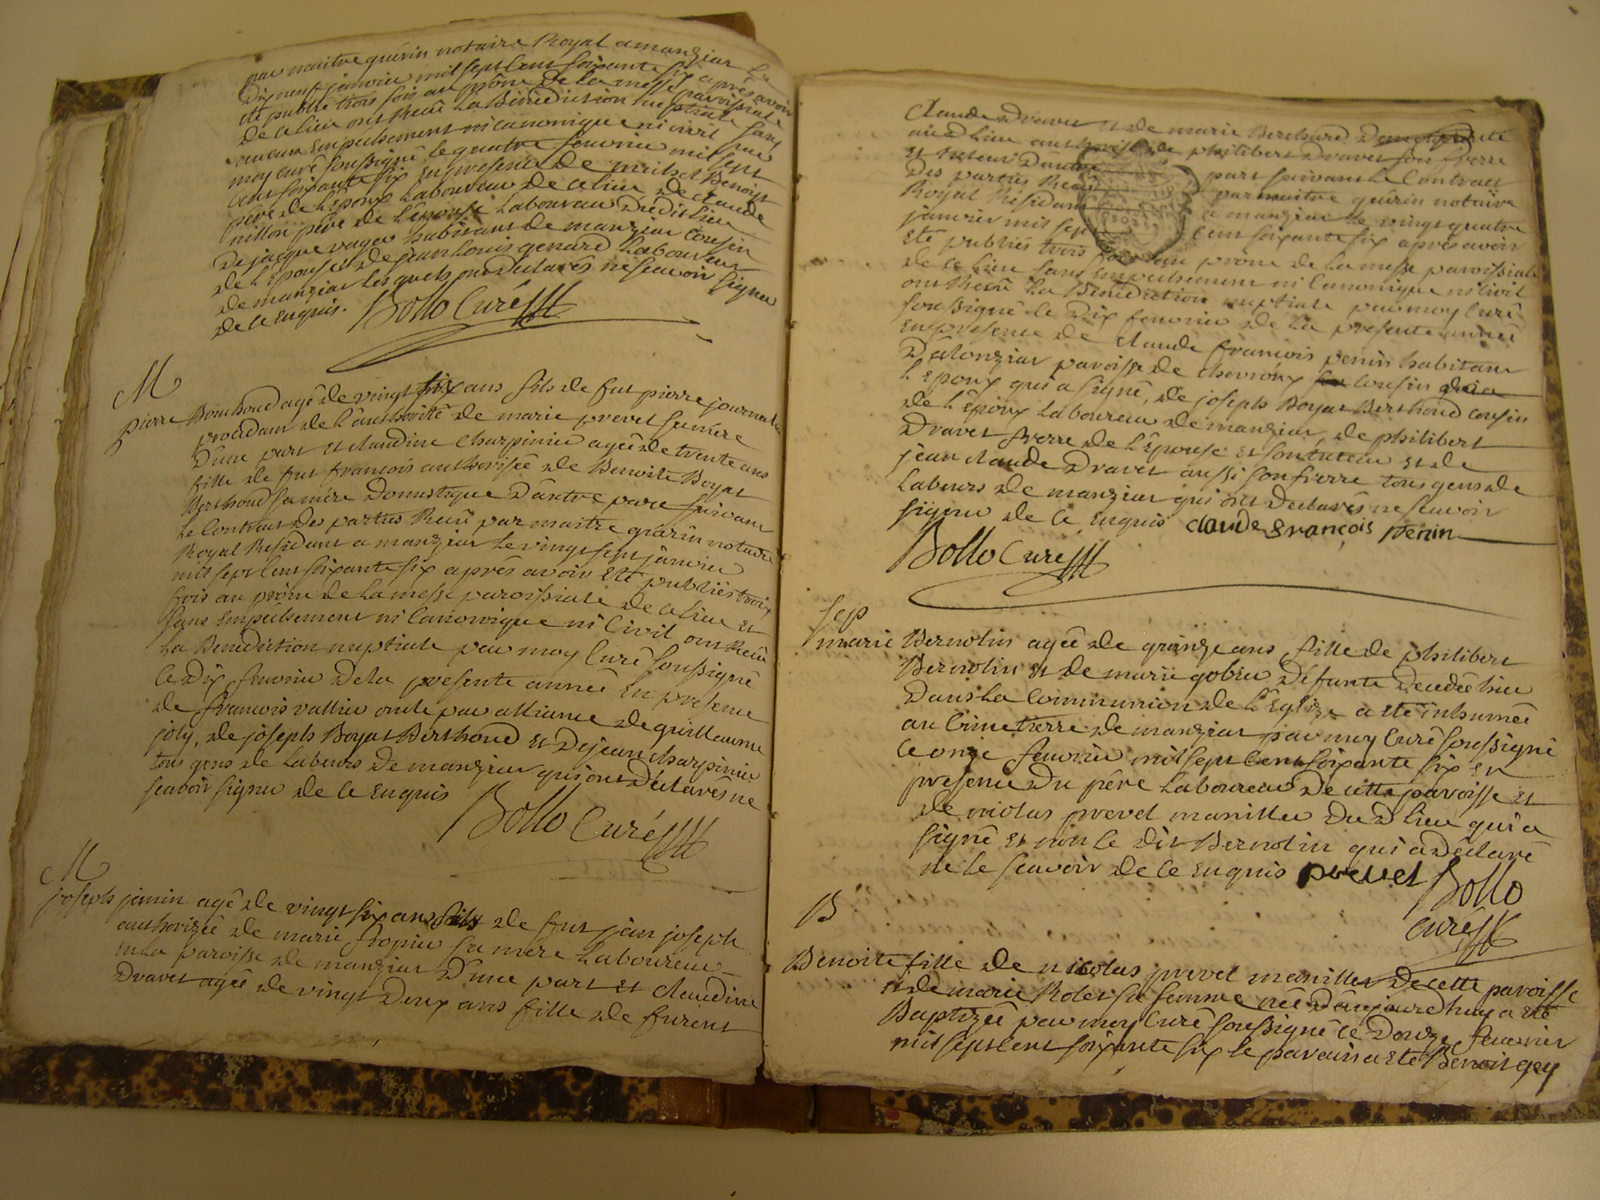 par maitre guérin notaire Royal a manziat le
dixneuf janvier mil sept cent soixante six apres avoir
été publié trois fois au prône de la messe paroissiale
de ce lieu ont Receu La Benediction nuptiale sans
aucun Empechement ni canonique ni civil par
moy curé soussigné le quatre fevrier mil sept
cent soixante six En presence de Benoit
père de L'Epoux Laboureur de ce lieu de claude
nillon père de l'épouse Laboureur dudit lieu
de jacque vager habitant de manziat cousin
de L'Epouse et de jean Louis genard Laboureur
de manziat lesquels ont declarés ne scavoir signer
de ce enquis. Bollo Curé
M
pierre Bouchoud agé de vingt six ans fils de fut pierre journal
procedant de L'authorité de marie prevet sa mère
D'une part et claudine charpinie agée de trente ans
fille de fut francois authorisée de Benoite Boyat
Berthoud sa mère Domestique D'autre part suivant
le Contrat des parties Receu par maitre guérin notaire
Royal Residant a manziat le vingt sept janvier
mil sept cent soixante six apres avoir Eté publiés trois
fois au prône de la messe paroissiale de ce lieu et
sans Empechement ni Canonique ni Civil ont Receu
La Benediction nuptiale par moy Curé soussigné
le dix fevrier de la presente année En presence
de francois vallier oncle par alliance de guillaume
joly, de joseph Boyat Berthoud et de jean charpinie
tous gens de Labeurs de manziat qui ont declarés ne
scavoir signer de ce enquis Bollo Curé
M
joseph janin agé de vingt six ans fils de fut jean joseph
authorisée de marie sa mere Laboureur
en la paroisse de manziat D'une part et claudine
Dravet agée de vingt deux ans fille de furent
Claude Dravet et de marie Berthard
audit lieu authorisée de philibert Dravet son frere
et tuteur D'autre part suivant le Contrat
des parties Receu par maitre guérin notaire
Royal Residant a manziat le vingt quatre
janvier mil sept cent soixante six apres avoir
Eté publiés trois fois au prone de la messe paroissiale
de ce lieu sans Empechement ni Canonique ni Civil
ont Receu La Benediction nuptiale par moy Curé
soussigné le Dix fevrier de la presente année
En presence de claude francois penin habitant
D'alonziat paroisse de chevroux cousin de
L'Epoux qui a signé, de joseph Boyat Berthoud cousin
de L'Epoux Laboureur de manziat, de philibert
Dravet frere de L'Epouse et son tuteur et de
jean claude Dravet aussi son frere tous gens de
Labeurs de manziat qui ont declarés ne scavoir
signer de ce enquis claude François Penin
Bollo Curé
Sep
marie Bernolin agée de quinze ans fille de philibert
Bernolin et de marie gobin défunte decedée hier
dans la communion de L'Eglise a eté inhumée
au Cimetierre de manziat par moy Curé soussigné
le onze fevrier mil sept cent soixante six en
presence du père Laboureur de cette paroisse et
de nicolas prevet manillier du d lieu qui a
signé et non le dit Bernolin qui a declaré
ne le scavoir de ce enquis prevet Bollo
Curé
B
Benoite fille de nicolas prevet manillier de cette paroisse
et de marie Rolet sa femme née d'aujourdhuy a eté
Baptizée par moy Curé soussigné le Douze fevrier
mil sept cent soixante six le parrain a eté Benoit gey